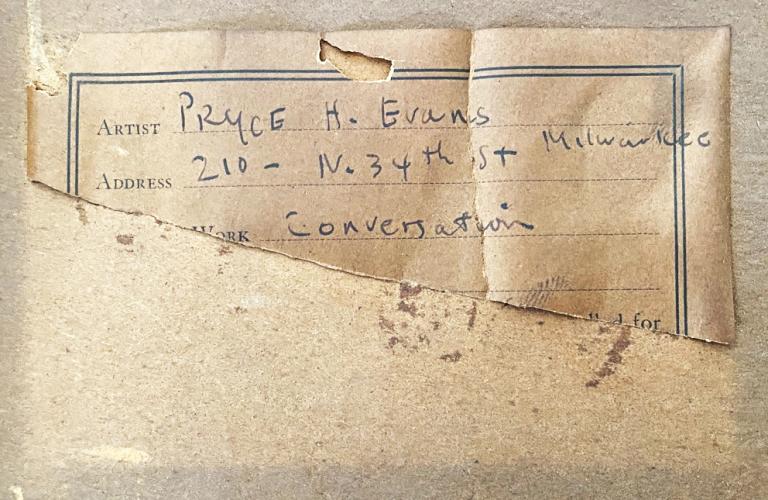 ARTIST PRYCE H. Evans
ADDRESS 210 - N. 34th St Milwaukee
WORK Conversation
for